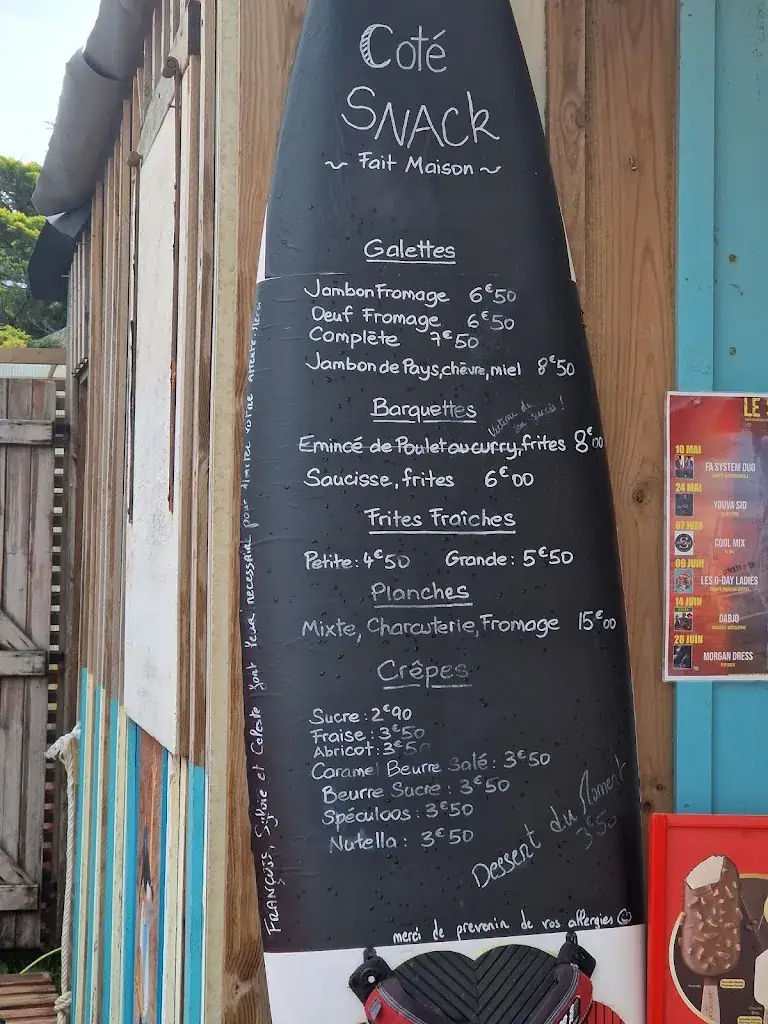 Coté
SNACK
~ Fait Maison ~
Galettes
Jambon Fromage 6€50
Oeuf Fromage 6€50
Complète 7€50
Jambon de Pays, chèvre, miel 8€50
Barquettes
Victime de
son succès !
Emincé de Poulet au curry, frites 8€00
Saucisse, frites 6€00
Frites Fraîches
Petite : 4€50 Grande : 5€50
Planches
Mixte, Charcuterie, Fromage 15€00
Crêpes
Sucre : 2€90
Fraise : 3€50
Abricot : 3€50
Caramel Beurre Salé : 3€50
Beurre Sucre : 3€50
Spéculoos : 3€50
Nutella : 3€50
Dessert du Moment
3€50
merci de prevenir de vos allergies
FRANÇOIS, Sylvie et Celeste font leur necessaire pour limiter votre attente. Merci
LE
10 MAI
FA SYSTEM DUO
24 MAI
YOUVA SID
07 JUIN
COOL MIX
09 JUIN
LES D-DAY LADIES
14 JUIN
DABJO
28 JUIN
MORGAN DRESS